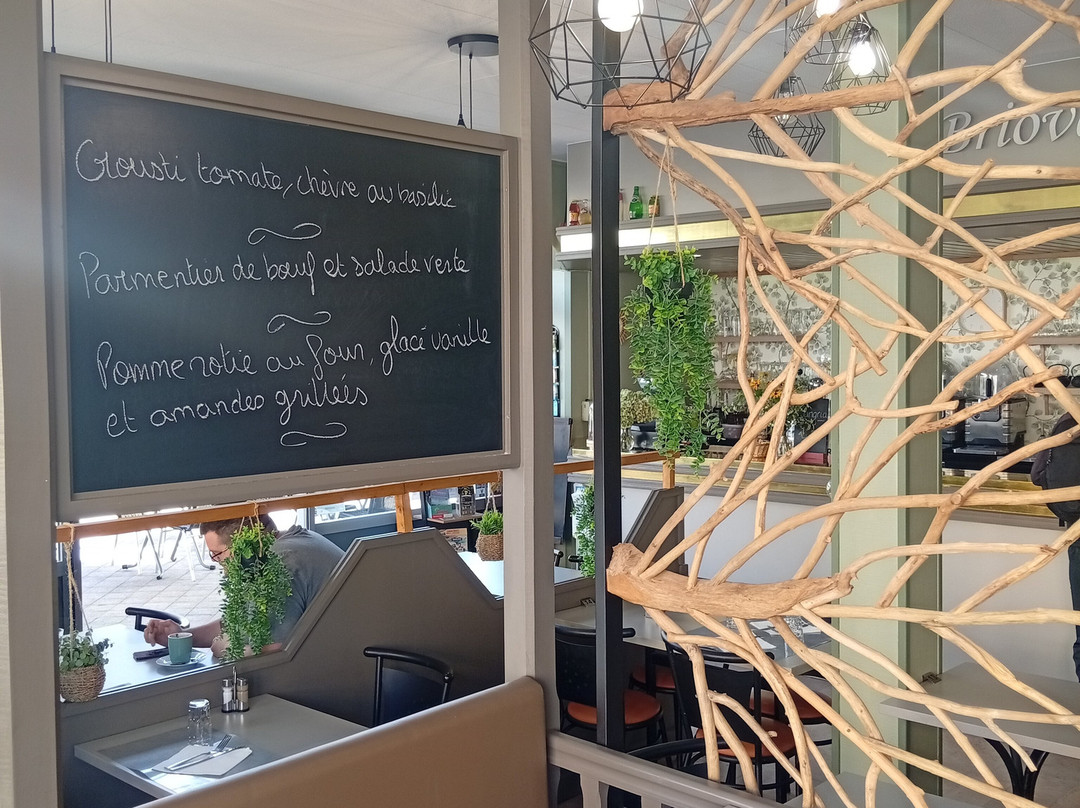 Crousti tomate, chèvre au basilic
Parmentier de bœuf et salade verte
Pomme rotie au four, glace vanille
et amandes grillées
Briov